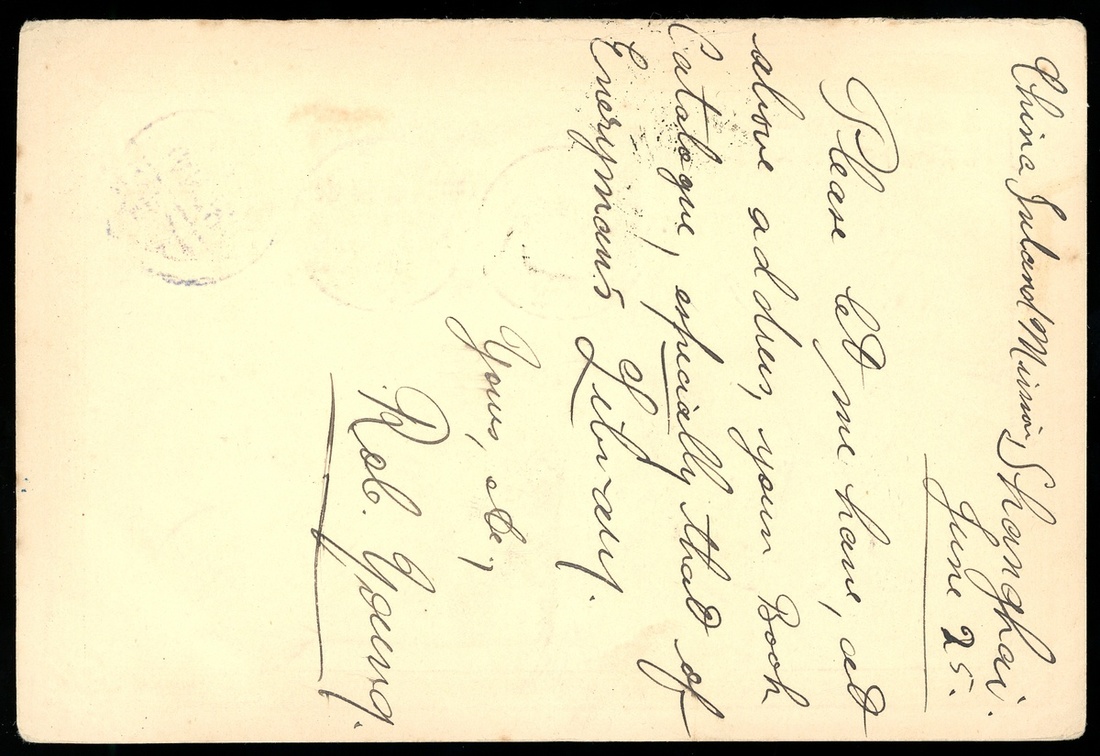 China Inland Mission, Shanghai.
June 25.
Please let me have, at
above address, your Book
Catalogue, especially that of
Everyman's Library.
Yours, etc.,
Rob. Young.